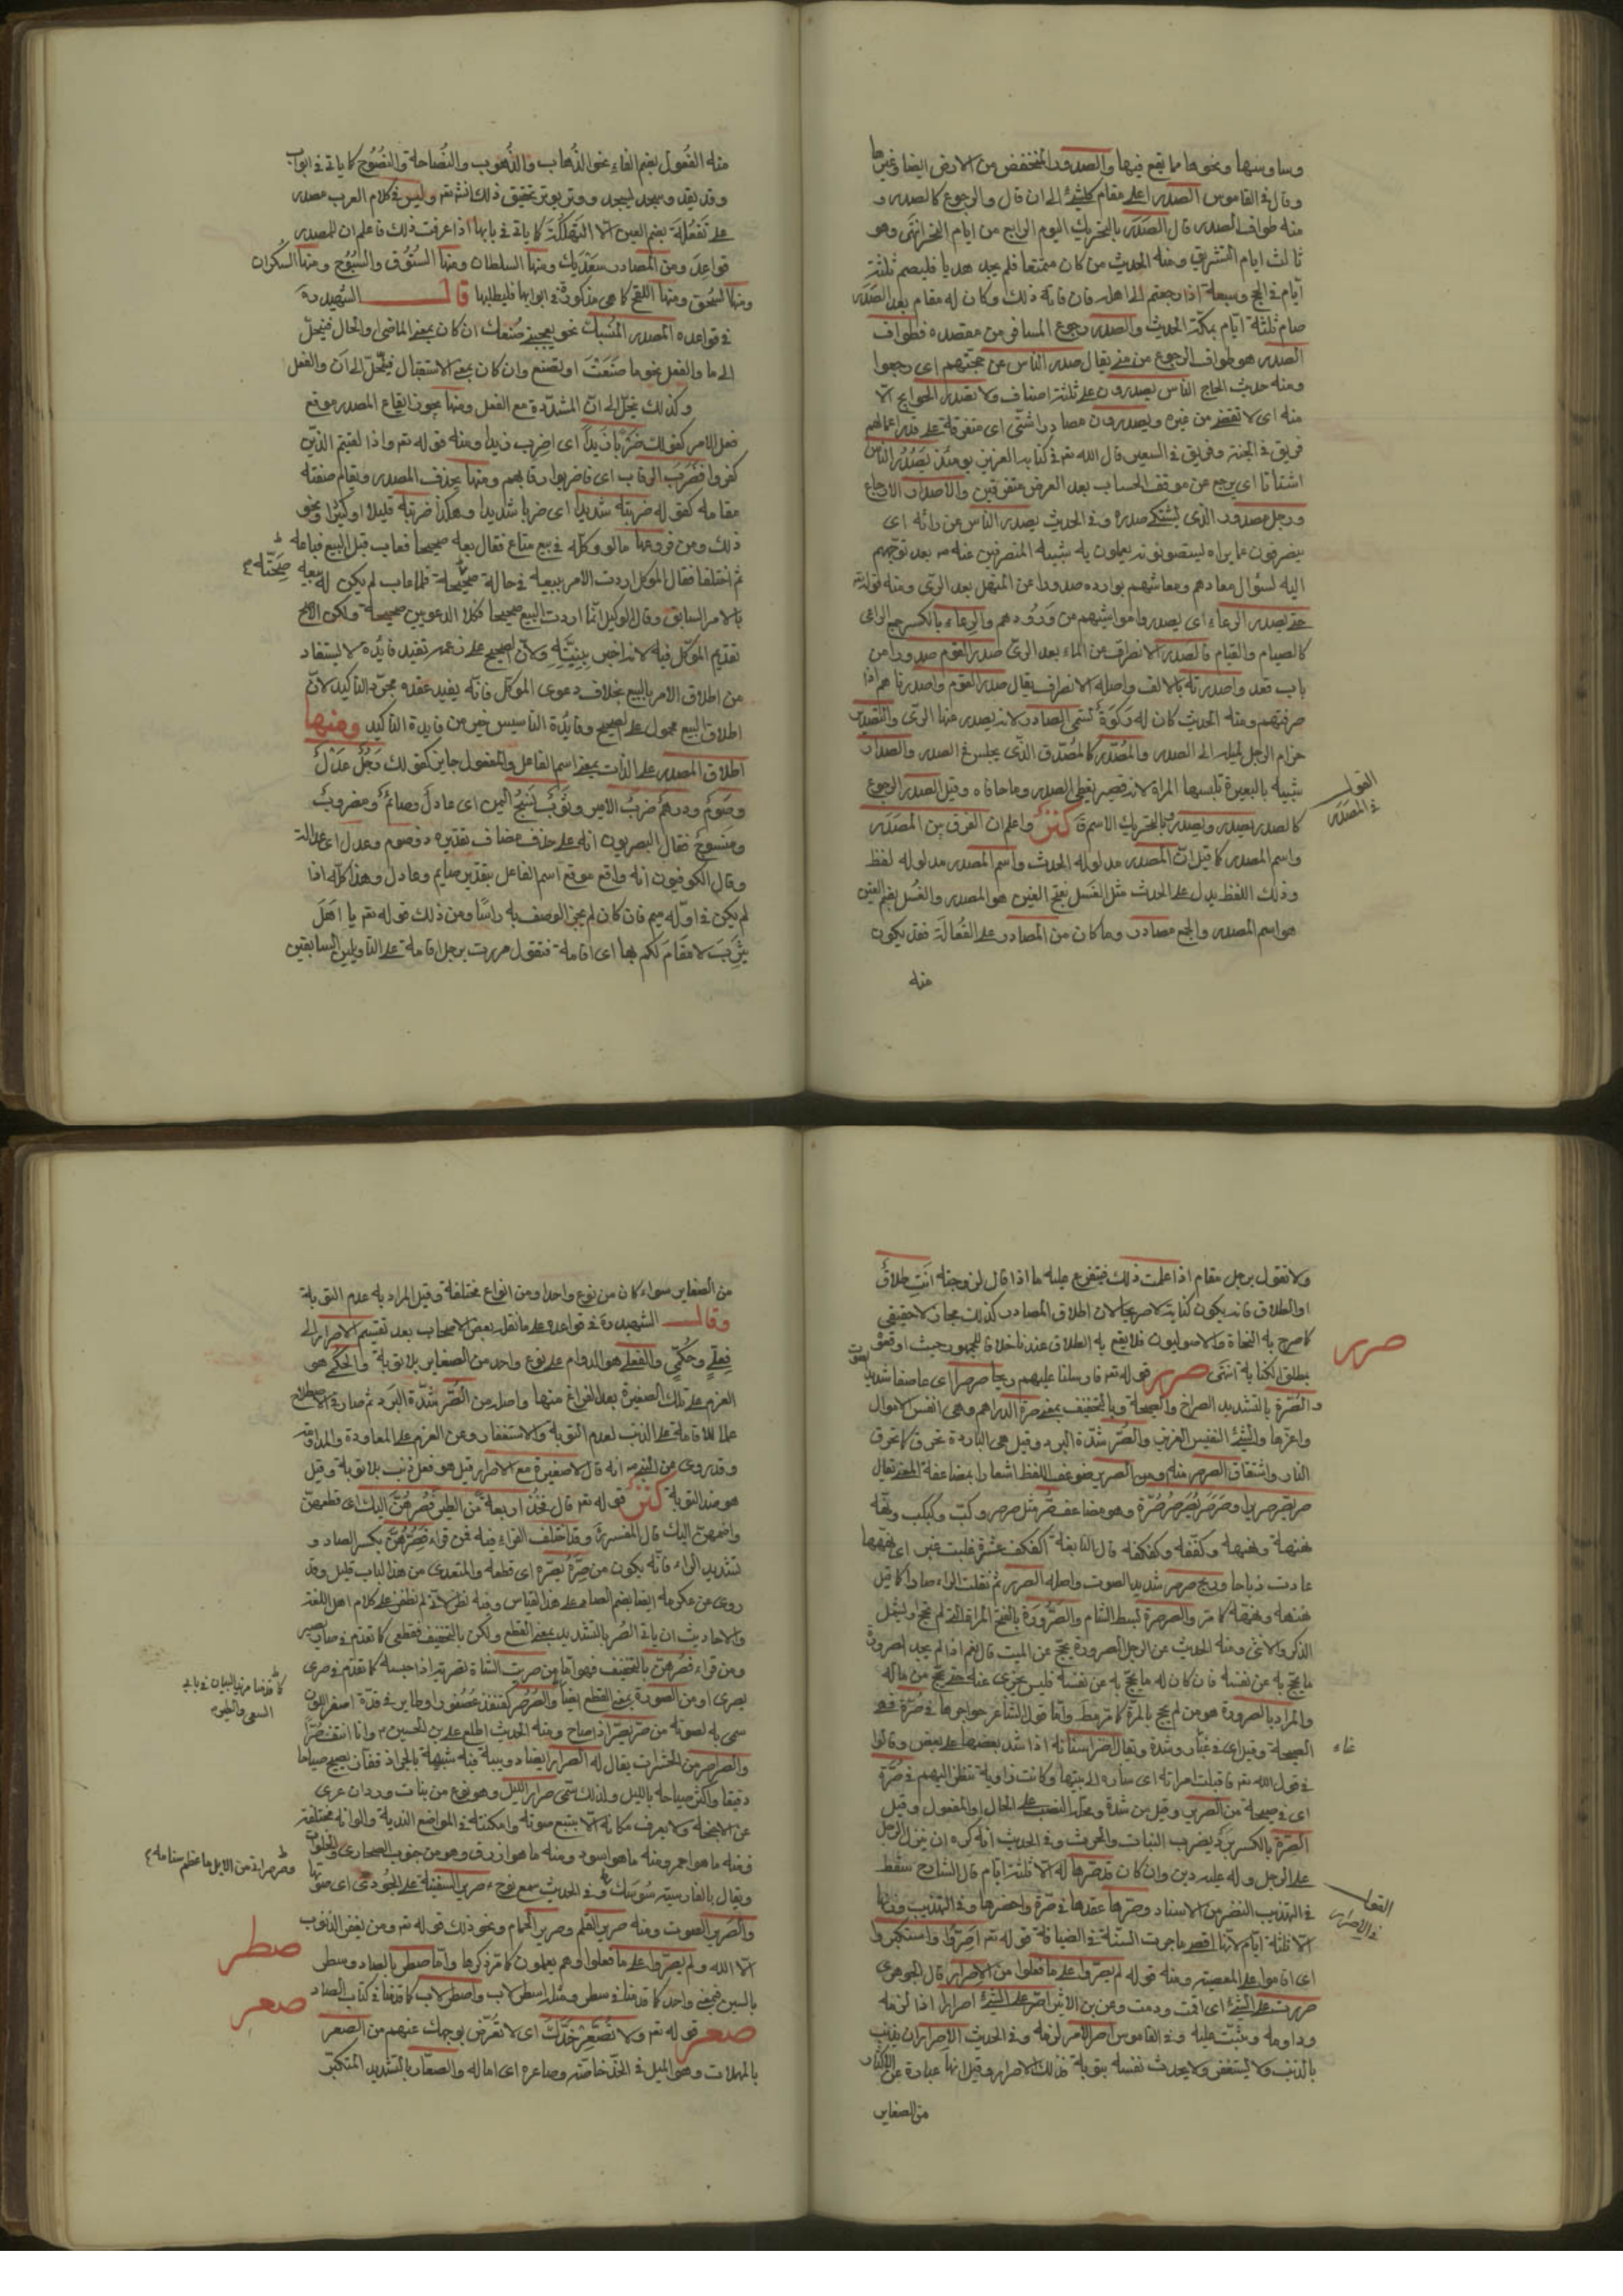 وساوسها ونحوها مما يقع فيها والصدور المنخفض من الارض ايضا وغيرها
وقال في القاموس الصدر اعلى مقام كل شئ الى ان قال والرجوع كالصدر و
منه طواف الصدر قال الصدر بالتحريك اليوم الرابع من ايام النحر انتهى وهو
ثالث ايام التشريق ومنه الحديث من كان متمتعا فلم يجد هديا فليصم ثلثة
ايام في الحج وسبعة اذا رجعتم الى اهله فان فاته ذلك وكان له مقام بعد الصدر
صام ثلثة ايام بمكة الحديث والصدر رجوع المسافر من مقصده فطواف
الصدر هو طواف الرجوع من منى يقال صدر الناس عن حجتهم اى رجعوا
ومنه حديث الحاج الناس يصدرون على ثلثة اصناف ولا تصدر الحوايج الا
منه اى لا تقضى من غيره ويصدرون مصادر اشتى اى متفرقة على قدر اعمالهم
فريق في الجنة وفريق في السعير قال الله تعـ في كتابه العزيز يومئذ يصدر الناس
اشتاتا اى يرجع عن موقف الحساب بعد العرض متفرقين والاصدار الارجاع
ورجل مصدور الذى يشتكى صدره وفي الحديث يصدر الناس عن رائه اى
ينصرفون عما يراه ليستصوبونه يعملون به بتشبيه المنصرفين عنه صـ بعد توجههم
اليه لسؤال معادهم ومعاشهم بوارده صدورا عن المنهل بعد الرى ومنه قوله تعـ
حتى يصدر الرعاء اى يصدروا مواشيهم من ورودهم والرعاء بالكسر جمع الراعى
كالصيام والقيام فالصدر الانصراف عن الماء بعد الرى صدر القوم صدورا من
باب قعد واصدرته بالالف واصله الانصراف يقال صدر القوم واصدرناهم اذا
صرفتهم ومنه الحديث كان له ركوة تسمى الصادر لانه يصدر عنها الرى والتصدير
حزام الرحل لميله الى الصدر والمصدر كالمصدق الذى يجلس في الصدر والصدار
شبيه بالبعيرة تلبسها المراة لانه قصير يغطى الصدر وما حاذاه وقيل الصدر الرجوع
كالصدر يصدر ويصدر وبالتحريك الاسم فـ كنز واعلم ان الفرق بين المصدر
واسم المصدر كما قيل ان المصدر مدلوله الحدث واسم المصدر مدلوله لفظ
وذلك اللفظ يدل على الحدث مثل الغسل بفتح الغين هو المصدر والغسل بضم الغين
هو اسم المصدر والجمع مصادر وما كان من المصادر على الفعالة فقد يكون
منه
القول
في المصدر
منه الفعول بضم الفاء نحو الذهاب والذهوب والنصاحة والنصوح كما ياتى في ابواب
وقد يقد وسجد ليسجد ووتر يوتر تحقيق ذلك انشـ تعـ وليس في كلام العرب مصدر
على تفعلة بضم العين الا التهلكة كما ياتى في بابها اذا عرفت ذلك فاعلم ان للمصدر
قواعد ومن المصادر سعديك ومنها السلطان ومنها السنوف والسبوح ومنها السكران
ومنها السحق ومنها اللقح كما هى مذكورة في ابوابها فليطلبها قال الشهيد ره
في قواعده المصدر المنسبك نحو يعجبنى صنعك ان كان بمعنى الماضى او الحال فينحل
الى ما والفعل نحو ما صنعت او تصنع وان كان بمعنى الاستقبال فينحل الى ان والفعل
وكذلك ينحل الى ان المشددة مع الفعل ومنها يجوز ايقاع المصدر موقع
فعل الامر كقولك ضربا زيدا اى اضرب زيدا ومنه قوله تعـ واذا لقيتم الذين
كفروا فضرب الرقاب اى فاضربوا رقابهم ومنها يحذف المصدر ويقام صفته
مقامه كقوله ضربته شديدا اى ضربا شديدا وهكذا ضربته قليلا او كثيرا ونحو
ذلك ومن فروعها ما لو وكله في بيع متاع فقال بعه صحيحا فعاب قبل البيع فباعه
ثم اختلفا فقال الموكل اردت الامر ببيعه في حالة صحيحة فلما عاب لم يكن له بيعه
صحته
بالامر السابق وقال الوكيل انما اردت البيع صحيحا فكلا الدعويين صحيحة ولكن الارجح
تقديم الموكل فيه لانه اخبر بنيته ولان الصحيح على زعمه تفيد فائدة لا يستفاد
من اطلاق الامر بالبيع بخلاف دعوى الموكل فانه يفيد عقده مجرد التاكيد لان
اطلاق البيع محمول على الصحيح وفائدة التاسيس خير من فايدة التاكيد ومنها
اطلاق المصدر على الذات بمعنى اسم الفاعل والمفعول جايز كقولك رجل عدل
وصوم ودرهم ضرب الامير وثوب نسج اليمن اى عادل وصائم ومضروب
ومنسوج فقال البصريون انه على حذف مضاف تقديره ذو صوم وعدل اى عدالة
وقال الكوفيون انه واقع موقع اسم الفاعل بتقدير صايم وعادل وهذا كله اذا
لم يكن في اوله ميم فان كان لم يجز الوصف به راسا ومن ذلك قوله تعـ يا اهل
يثرب لا مقام لكم بها اى اقامة فتقول مررت برجل اقامة على التاويلين السابقين
ولا تقول برجل مقام اذا علمت ذلك فيتفرع عليه ما اذا قال لزوجته انت طلاق
او الطلاق فانه يكون كناية لا صريحا لان اطلاق المصادر كذلك مجاز لا حقيقى
كما صرح به النحاة والاصوليون فلا يقع به الطلاق عندنا خلافا للجمهور حيث اوقعوا
بطلق الكناية انتهى صرر قوله تعـ فارسلنا عليهم ريحا صرصرا اى عاصفا شديد
صرر
والصرة بالتشديد الصراخ والصيحة وبالتخفيف بمعنى صرة الدراهم وهى انفس الاموال
واعزها والشئ النفيس العزيز والصر شدة البرد وقيل هى الباردة تحرق كما تحرق
النار واشتقاق الصرصر منه ومن الصرير ضوعف اللفظ اشعارا بمضاعفة المعنى يقال
صر يصر صريرا وصرصر يصرصر صرة وهو مضاعف صر مثل صرصر وكب وكبكب ونهه
نهنهة وكففه وكفكفه قال النابغة اكفكف عشرة غلبت عبر اى نهنهها
عادت ذباحا وريح صرصر شديد الصوت واصله الصرر ثم نقلت الراء صادا كما قيل
نهنهه كما مر والصرصرة لبسط الشام والصرورة بالفتح المراة التى لم تحج ويشمل
الذكر والانثى ومنه الحديث عن الرجل الصرورة يحج عن الميت قال نعم اذا لم يجد الصرورة
ما يحج به عن نفسه فان كان له ما يحج به عن نفسه فليس يجزى عنه حتى يحج من ماله
والمراد بالصرورة هو من لم يحج بالمرة كما مر واما قول الشاعر حواجرها في صرة فهى
الصيحة وقيل اى في غبار وشدة ويقال صر اسنانه اذا شد بعضها على بعض وقالوا
في قول الله تعـ فاقبلت امراته اى ساره الى بيتها وكانت زاوية تنظر اليهم في صرة
اى في صيحة من الصرير وقيل من شدة ومحله النصب على الحال او المفعول وقيل
الصرة بالكسر برد يضرب النبات والحرث وفي الحديث انه كره ان ينزل الرجل
على الرجل وله عليه دين وان كان قد صرها له الا ثلثة ايام قال الشارح سقط
في التهذيب النضر من الاسناد وصرها عقدها في صرة واحضرها وفي التهذيب وزنها
الا ثلثة ايام لانها اقصر ما جرت السنة في الضيافة قوله تعـ اصروا واستكبروا
اى اقاموا على المعصية ومنه قوله لم يصروا على ما فعلوا من الاصرار قال الجوهرى
صررت على الشئ اى اقمت ودمت وعن بن الاثير اصر على الشئ اصرارا اذا لزمه
وداومه وثبت عليه وفي القاموس اصر الامر لزمه وفي الحديث الاصرار ان يذنب
بالذنب ولا يستغفر ولا يحدث نفسه بتوبة فذلك الاصرار وقيل انها عبارة عن الاكثار
من الصغاير
القول
في الاصرار
من الصغاير سواء كان من نوع واحد او من انواع مختلفة وقيل المراد به عدم التوبة
وقال الشهيد ره في قواعده على ما نقل بعض الاصحاب بعد تقسيم الاصرار الى
فعلى وحكمى والفعلى هو الدوام على نوع واحد من الصغاير بلا توبة والحكمى هو
العزم على تلك الصغيرة بعد الفراغ منها واصله من الصر شدة البرد ثم صار في الاصطلاح
علما للاقامة على الذنب لعدم التوبة والاستغفار وعن العزم على المعاودة والمداومة
وقد روى عن النبى صـ انه قال لا صغيرة مع الاصرار قيل هو فعل ذنب بلا توبة وقيل
هو ضد التوبة كنز قوله تعـ قال فخذ اربعة من الطير فصرهن اليك اى قطعهن
واضممهن اليك قال المفسرة وقد اختلف القراء فيه فمن قراء فصرهن بكسر الصاد و
تشديد الراء فانه يكون من صره يصره اى قطعه والمتعدى من هذا الباب قليل وقد
روى عن عكرمه ايضا بضم الصاد على هذا القياس وفيه نظر لانه لم نظفر على كلام اهل اللغة
والاحاديث ان ياتى الصر بالتشديد بمعنى القطع ولكن بالتخفيف فقطعى كما تقدم في صار يصير
ومن قراء فصرهن بالتخفيف فهو اما من صريت الشاة تصرية اذا حبسه كما تقدم في صرى
يصرى او من الصورة بمعنى القطع ايضا والصرصر كقنفذ عصفور او طاير في قدة اصفر اللون
سمى به لصوته من صر يصر اذا صاح ومنه الحديث اطلع على بن الحسين ع وانا انتف صرا
والصرصر من الحشرات يقال له الصرار ايضا دويبة فيه شبهة بالجراد قفاز يصيح صياحا
دقيقا واكثر صياحه بالليل ولذلك سمى صرار الليل وهو نوع من بنات وردان عرى
عن الاجنحة ولا يعرف مكانه الا بتتبع صوته وامكنته في المواضع الندية والوانه مختلفة
فمنه ما هو احمر ومنه ما هو اسود ومنه ما هو ازرق وهو من جنوب الصحارى والفلوات
ويقال بالفارسية سوسك وفي الحديث سمع نوح ع صرير السفينة على الجودى اى صوتها
والصرير الصوت ومنه صرير القلم وصرير الحمام ونحو ذلك قوله تعـ ومن يغفر الذنوب
الا الله ولم يصروا على ما فعلوا وهم يعلمون كما مر ذكرها واما صطر بالصاد وسطر
بالسين فبمعنى واحد كما قدمنا في سطر ومثله اسطرلاب واصطرلاب كما قدمنا في كتاب الصاد
صعر قوله تعـ ولا تصعر خدك اى لا تعرض بوجهك عنهم من الصعر
بالمهملات وهو الميل في الخد خاصة وصاعره اى اماله والصعار بالتشديد المتكبر
كما قدمنا مزيد البيان في باب
السعى والطير
وصرصرانى من الابل ما عظم سنامه
صطر
صعر